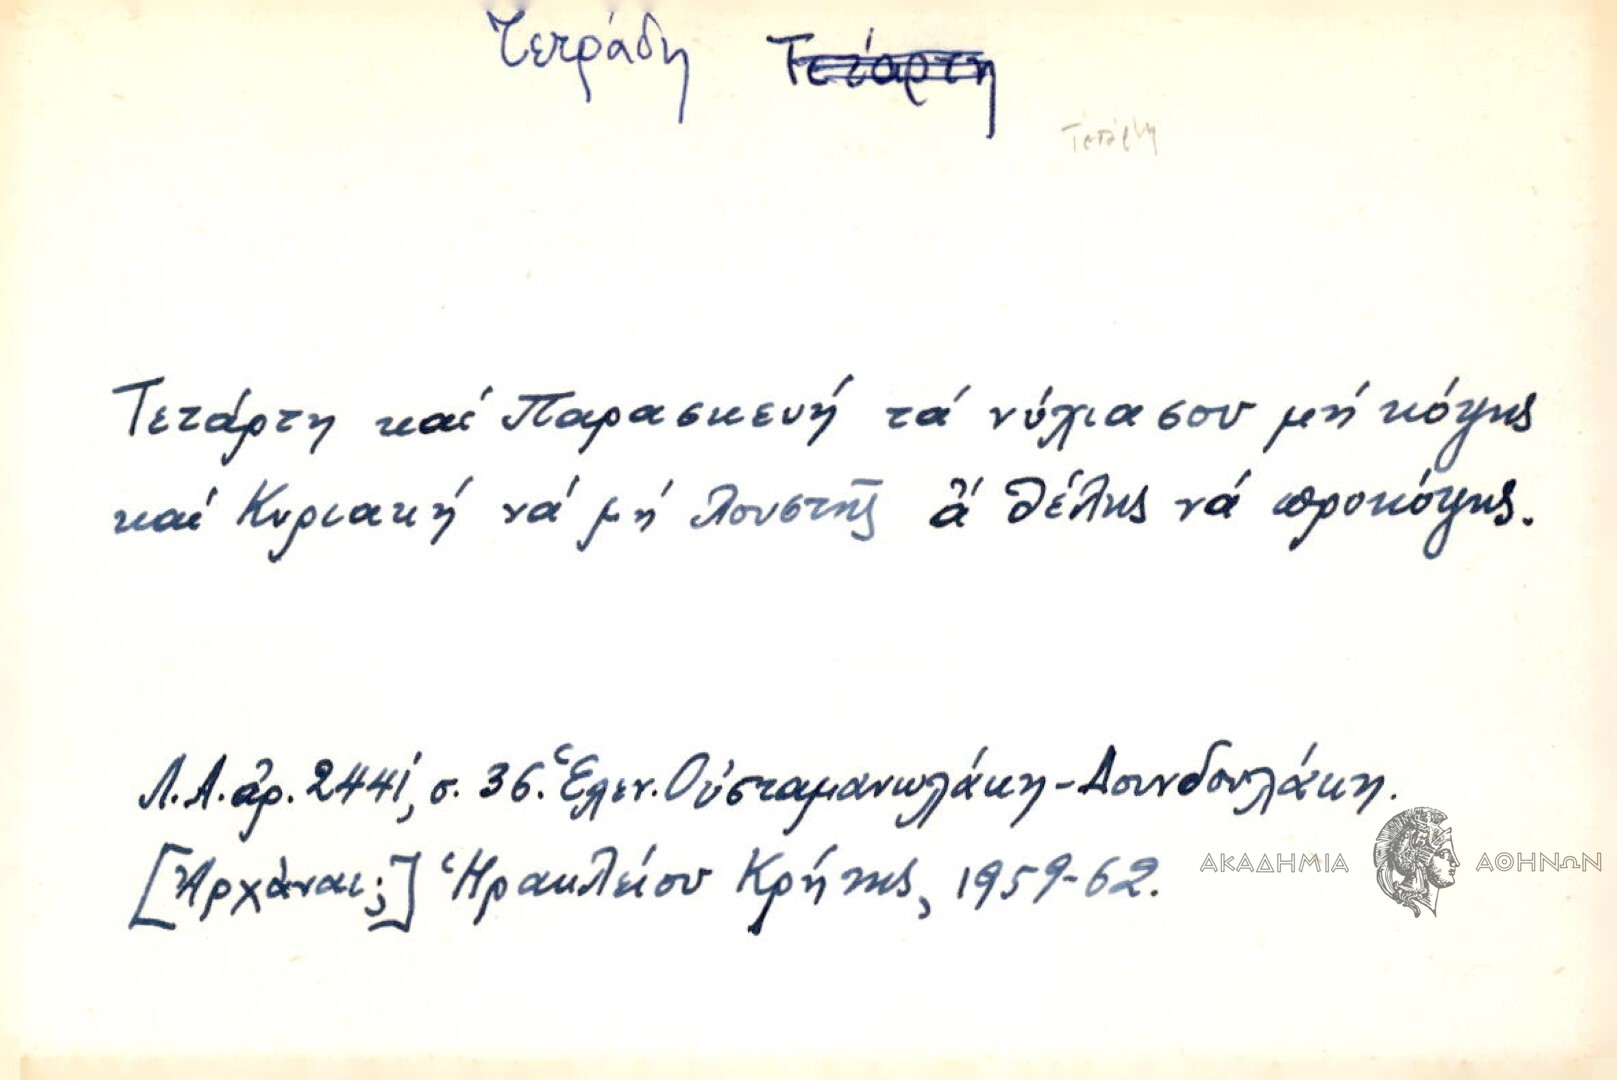 Τετράδη Τετάρτη
Τετάρτη καί Παρασκευή τά νύχια σου μή κόψης
καί Κυριακή νά μή λουστῆς ἄ θέλης νά προκόψης.
Λ.Α. ἀρ. 2441, σ. 36. Ἑλεν. Οὐσταμανωλάκη-Δουνδουλάκη.
[Ἀρχάναι;] Ἡρακλείου Κρήτης, 1959-62.
ΑΚΑΔΗΜΙΑ ΑΘΗΝΩΝ